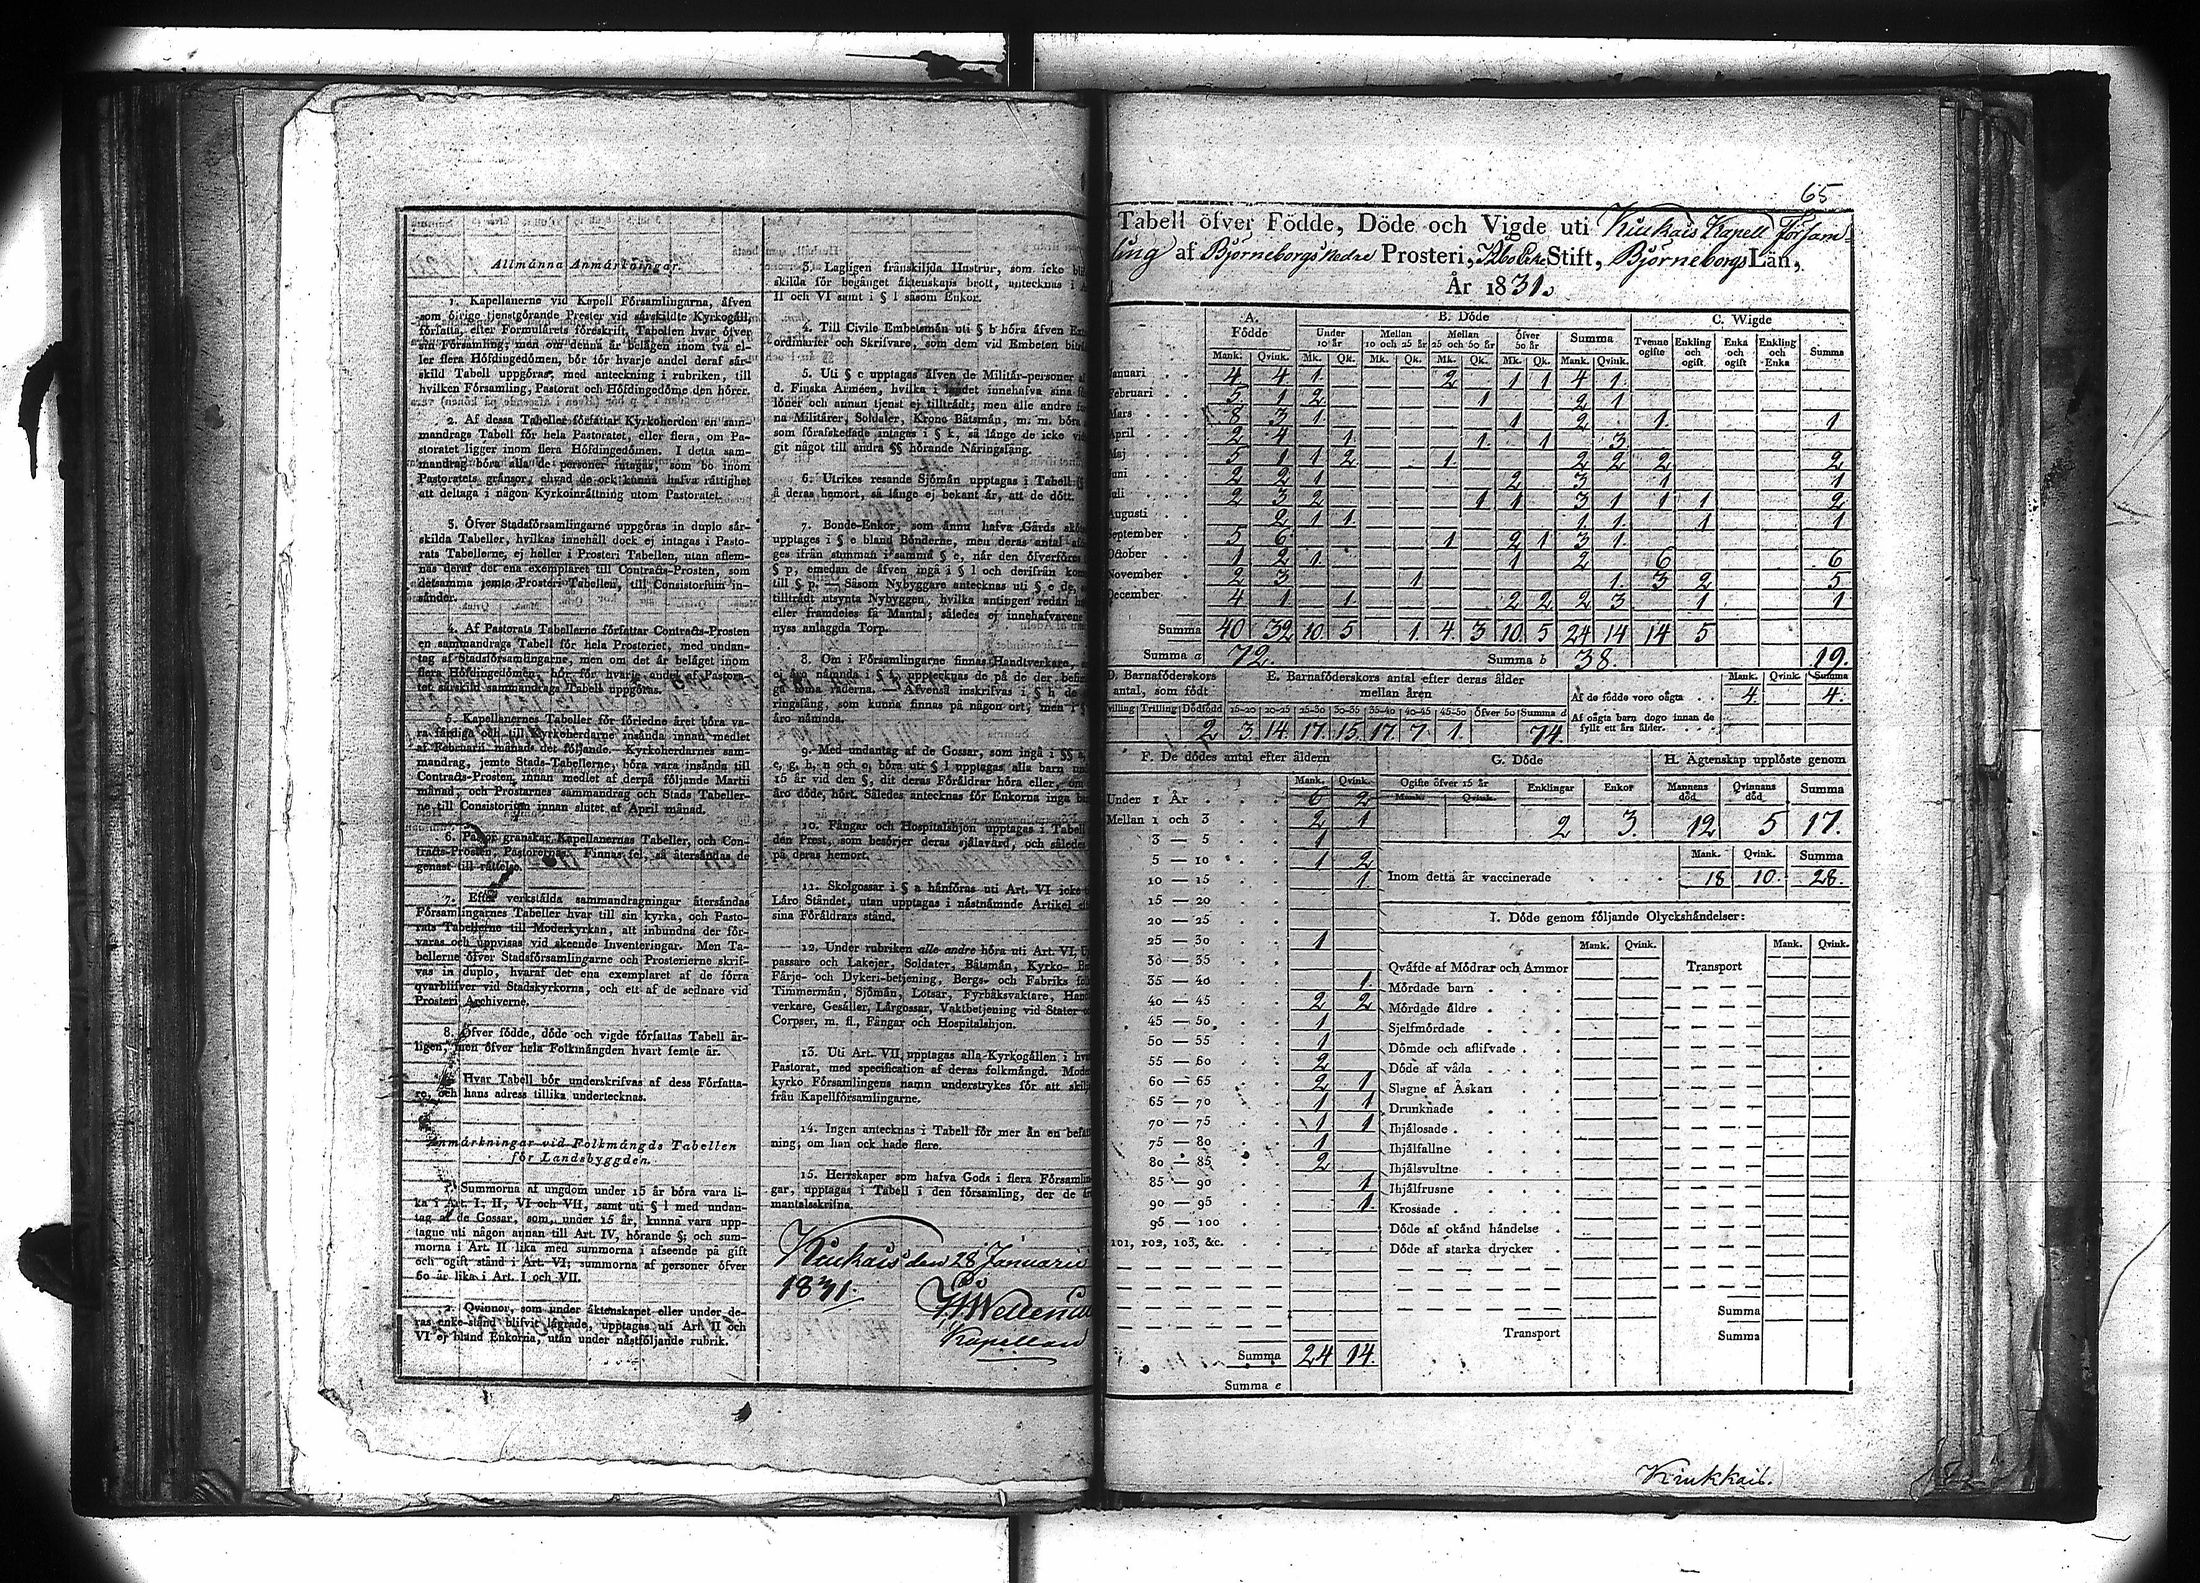 Allmänna Anmärkningar.
1. Kapellanerne vid Kapell Församlingarna, åfven
som öfrige tjenstgörande Prester vid särskildte Kyrkogåll,
författa, efter Formulårets föreskrift, Tabellen hvar öfver
sin Församling; men om denna år belågen inom två el-
ler flera Höfdingedömen, bör för hvarje andel deraf sår-
skild Tabell uppgöras, med anteckning i rubriken, till
hvilken Församling, Pastorat och Höfdingedöme den hörer.
2. Af dessa Tabeller författar Kyrkoherden en sam-
mandrags Tabell för hela Pastoratet, eller flera, om Pa-
storatet ligger inom flera Höfdingedömen. I detta sam-
mandrag böra alla de personer intagas, som bo inom
Pastoratets gränsor, ehvad de ock kunna hafva råttighet
att deltaga i någon Kyrkoinråttning utom Pastoratet.
3. Öfver Stadsförsamlingarne uppgöras in duplo sår-
skilda Tabeller, hvilkas innehåll dock ej intagas i Pasto-
rats Tabellerne, ej heller i Prosteri Tabellen, utan aflem-
nas deraf det ena exemplaret till Contracts-Prosten, som
detsamma jemte Prosteri Tabellen, till Consistorium in-
sånder.
4. Af Pastorats Tabellerne författar Contracts-Prosten
en sammandrags Tabell för hela Prosteriet, med undan-
tag af Stadsförsamlingarne, men om det år belåget inom
flera Höfdingedömen, bör för hvarje andel af Pastora-
tet särskild sammandrags Tabell uppgöras.
5. Kapellanernes Tabeller för förledne året böra va-
ra färdiga och till Kyrkoherdarne insånda innan medlet
af Februarii månad det följande. Kyrkoherdarnes sam-
mandrag, jemte Stads-Tabellerne, böra vara insånda till
Contracts-Prosten innan medlet af derpå följande Martii
månad, och Prostarnes sammandrag och Stads Tabeller-
ne till Consistorium innan slutet af April månad.
6. Pastor granskar Kapellanernes Tabeller, och Con-
tracts-Prosten Pastorernas. Finnas fel, så återsåndas de
genast till råttelse.
7. Efter verkstålda sammandragningar återsåndas
Församlingarnes Tabeller hvar till sin kyrka, och Pasto-
rats Tabellerne till Moderkyrkan, att inbundna der för-
varas och uppvisas vid skeende Inventeringar. Men Ta-
bellerne öfver Stadsförsamlingarne och Prosterierne skrif-
vas in duplo, hvaraf det ena exemplaret af de förra
qvarblifver vid Stadskyrkorna, och ett af de sednare vid
Prosteri Archiverne.
8. Öfver födde, döde och vigde författas Tabell år-
ligen, men öfver hela Folkmängden hvart femte år.
9. Hvar Tabell bör underskrifvas af dess Författa-
re, och hans adress tillika undertecknas.
Anmårkningar vid Folkmångds Tabellen
för Landsbyggden.
1. Summorna af ungdom under 15 år böra vara li-
ka i Art. I. II, VI och VII, samt uti § l med undan-
tag af de Gossar, som, under 15 år, kunna vara upp-
tagne uti någon annan till Art. IV, hörande §; och sum-
morna i Art. II lika med summorna i afseende på gift
och ogift stånd i Art. VI; summorna af personer öfver
60 år lika i Art. I och VII.
2. Qvinnor, som under åktenskapet eller under de-
ras enke-stånd blifvit lägrade, upptagas uti Art. II och
VI ej bland Enkorna, utan under nåstföljande rubrik.
3. Lagligen frånskiljda Hustrur, som icke
skilda för begånget åktenskaps brott, untecknas i
II och VI samt i § l såsom Enkor.
4. Till Civile Embetsmån uti § b höra åfven
ordinarier och Skrifvare, som dem vid Embeten
5. Uti § c upptagas åfven de Militår-personer
d. Finska Arméen, hvilka i landet innehafva sina
löner och annan tjenst ej tilltrådt; men alle andre
na Militårer, Soldater, Krono Båtsmån, m. m. böra
som förafskedade intagas i § k, så långe de icke
git något till andra §§ hörande Näringsfång.
6. Utrikes resande Sjömån upptagas i Tabell
å deras hemort, så långe ej bekant år, att de dött.
7. Bonde-Enkor, som ännu hafva Gårds
upptages i § e bland Bönderne, men deras antal
ges ifrån summan i samma § e, når den öfverföres
§ p, emedan de åfven ingå i § l och derifrån
till § p. — Såsom Nybyggare antecknas uti § e de,
tilltrådt utsynta Nybyggen, hvilka antingen redan
eller framdeles få Mantal; således ej innehafvarene
nyss anlaggda Torp.
8. Om i Församlingarne finnas Handtverkare,
ej åro nåmnda i § i, upptecknas de på de der
ga toma råderna. — Åfvenså inskrifvas i § h de
ringsfång, som kunna finnas på någon ort, men
åro nåmnda.
9. Med undantag af de Gossar, som ingå i §§
e, g, h, n och o, böra uti § l upptagas alla barn
15 år vid den §, dit deras Föråldrar höra eller, om
åro döde, hört. Således antecknas för Enkorna inga
10. Fångar och Hospitalshjon upptagas i Tabell
den Prest, som besörjer deras själavård, och således
på deras hemort.
11. Skolgossar i § a hånföras uti Art. VI icke
Låro Ståndet, utan upptagas i nåstnåmnde Artikel
sina Föråldrars stånd.
12. Under rubriken alle andre höra uti Art. VI,
passare och Lakejer, Soldater, Båtsmån, Kyrko-
Färje- och Dykeri-betjening, Bergs- och Fabriks
Timmermån, Sjömån, Lotsar, Fyrbåksvaktare,
verkare, Gesåller, Lårgossar, Vaktbetjening vid Stater
Corpser, m. fl., Fångar och Hospitalshjon.
13. Uti Art. VII, upptagas alla Kyrkogållen i
Pastorat, med specification af deras folkmångd.
kyrko Församlingens namn understrykes för att
från Kapellförsamlingarne.
14. Ingen antecknas i Tabell för mer ån en
ning, om han ock hade flere.
15. Herrskaper som hafva Gods i flera
gar, upptagas i Tabell i den församling, der de
mantalsskrifna.
Kiukais den 28 Januarii
1831.
Kapellan
65
Tabell öfver Födde, Döde och Vigde uti Kiukais Kapell Försam-
ling af Björneborgs Nedre Prosteri, Åbo Erke Stift, Björneborgs Län,
År 1831.
A. B. Döde C. Wigde
Födde Under 10 år Mellan 10 och 25 år Mellan 25 och 50 år öfver 50 år Summa Tvenne ogifte Enkling och ogift Enka och ogift Enkling och Enka Summa
Mank. Qvink. Mk. Qk. Mk. Qk. Mk. Qk. Mk. Qk. Mank. Qvink.
Januari 4 4 1 2 1 1 4 1
Februari 5 1 2 1 2 1
Mars 8 3 1 1 2 1 1
April 2 4 1 1 1 3
Maj 5 1 1 2 1 2 2 2 2
Juni 2 2 1 2 3 1 1
Juli 2 3 2 1 1 3 1 1 1 2
Augusti 2 1 1 1 1 1 1
September 5 6 1 2 1 3 1
October 1 2 1 1 2 6 6
November 2 3 1 1 3 2 5
December 4 1 1 2 2 2 3 1 1
Summa 40 32 10 5 1 4 3 10 5 24 14 14 5
Summa a 72. Summa b 38. 19.
D. Barnaföderskors antal, som födt
E. Barnaföderskors antal efter deras ålder
mellan åren
Mank. Qvink. Summa
Af de födde voro oågta 4. 4.
Af oågta barn dogo innan de
fyllt ett års ålder.
Tvilling Trilling Dödfödd 15-20 20-25 25-30 30-35 35-40 40-45 45-50 öfver 50 Summa d
2 3 14. 17. 15. 17. 7. 1. 74.
F. De dödes antal efter åldern
Mank. Qvink.
Under 1 År 6 2
Mellan 1 och 3 2 1
3 — 5 1
5 — 10 1 2
10 — 15 1.
15 — 20
20 — 25
25 — 30 1
30 — 35
35 — 40 1.
40 — 45 2 2
45 — 50 1
50 — 55 1
55 — 60 2
60 — 65 2 1
65 — 70 1 1
70 — 75 1 1
75 — 80 1
80 — 85 2
85 — 90 1
90 — 95 1.
95 — 100
101, 102, 103, &c.
Summa 24 14.
Summa e
G. Döde H. Ägtenskap upplöste genom
Ogifte öfver 15 år Enklingar Enkor Mannens död Qvinnans död Summa
Mank. Qvink.
2 3. 12 5 17.
Mank. Qvink. Summa
Inom detta år vaccinerade 18 10. 28.
I. Döde genom följande Olyckshåndelser:
Mank. Qvink. Mank. Qvink.
Qvåfde af Mödrar och Ammor Transport
Mördade barn
Mördade åldre
Sjelfmördade
Dömde och aflifvade
Döde af våda
Slagne af Åskan
Drunknade
Ihjålosade
Ihjålfallne
Ihjålsvultne
Ihjålfrusne
Krossade
Döde af okånd håndelse
Döde af starka drycker
Summa
Transport Summa
Kiukkais.